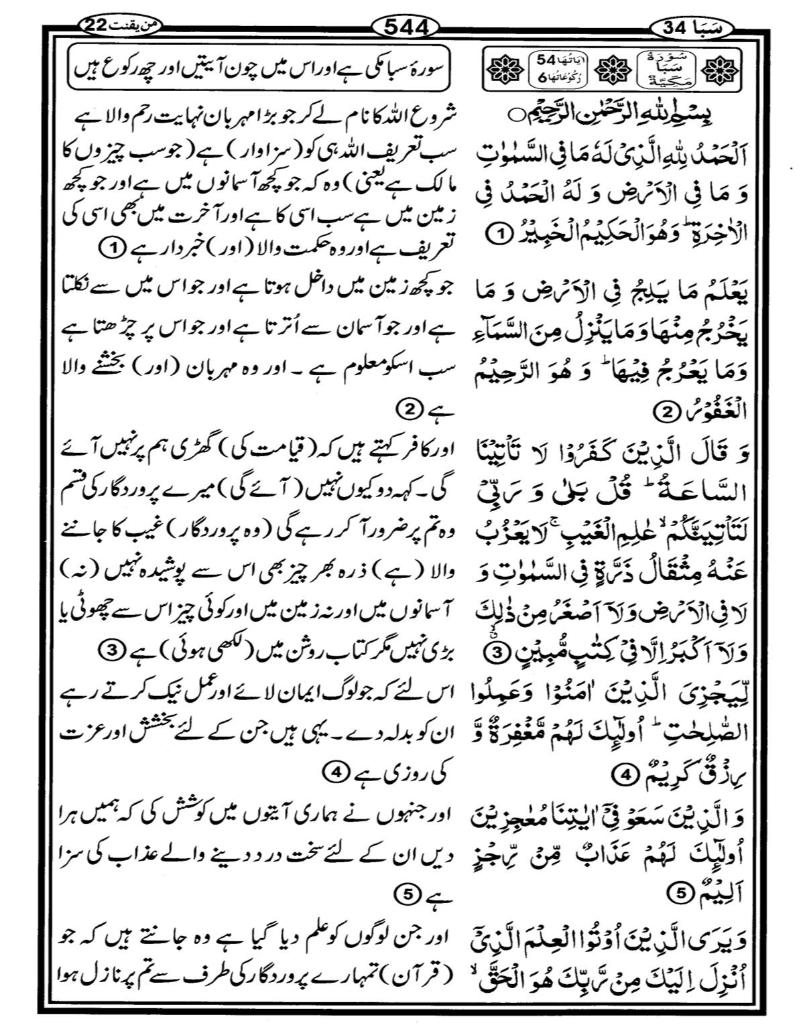 سَبَا 34
544
من یقنت 22
سُوۡرَۃُ سَبَا مَکِّیَّۃٌ
اٰیَاتُهَا 54
رُکُوۡعَاتُهَا 6
بِسۡمِ اللّٰهِ الرَّحۡمٰنِ الرَّحِیۡمِ
اَلۡحَمۡدُ لِلّٰهِ الَّذِیۡ لَهٗ مَا فِی السَّمٰوٰتِ
وَ مَا فِی الۡاَرۡضِ وَ لَهُ الۡحَمۡدُ فِی
الۡاٰخِرَةِ ؕ وَ هُوَ الۡحَکِیۡمُ الۡخَبِیۡرُ 1
یَعۡلَمُ مَا یَلِجُ فِی الۡاَرۡضِ وَ مَا
یَخۡرُجُ مِنۡهَا وَ مَا یَنۡزِلُ مِنَ السَّمَآءِ
وَمَا یَعۡرُجُ فِیۡهَا ؕ وَ هُوَ الرَّحِیۡمُ
الۡغَفُوۡرُ 2
وَ قَالَ الَّذِیۡنَ کَفَرُوۡا لَا تَاۡتِیۡنَا
السَّاعَةُ ؕ قُلۡ بَلٰی وَ رَبِّیۡ
لَتَاۡتِیَنَّکُمۡ ۙ عٰلِمِ الۡغَیۡبِ ۚ لَا یَعۡزُبُ
عَنۡهُ مِثۡقَالُ ذَرَّةٍ فِی السَّمٰوٰتِ وَ
لَا فِی الۡاَرۡضِ وَلَاۤ اَصۡغَرُ مِنۡ ذٰلِكَ
وَلَاۤ اَکۡبَرُ اِلَّا فِیۡ کِتٰبٍ مُّبِیۡنٍ ۙ 3
لِّیَجۡزِیَ الَّذِیۡنَ اٰمَنُوۡا وَعَمِلُوا
الصّٰلِحٰتِ ؕ اُولٰٓئِكَ لَهُمۡ مَّغۡفِرَةٌ وَّ
رِزۡقٌ کَرِیۡمٌ 4
وَ الَّذِیۡنَ سَعَوۡ فِیۡۤ اٰیٰتِنَا مُعٰجِزِیۡنَ
اُولٰٓئِكَ لَهُمۡ عَذَابٌ مِّنۡ رِّجۡزٍ
اَلِیۡمٌ 5
وَ یَرَی الَّذِیۡنَ اُوۡتُوا الۡعِلۡمَ الَّذِیۡۤ
اُنۡزِلَ اِلَیۡكَ مِنۡ رَّبِّكَ هُوَ الۡحَقَّ ۙ
سورۂ سبا مکی ہے اور اس میں چون آیتیں اور چھ رکوع ہیں
شروع اللہ کا نام لے کر جو بڑا مہربان نہایت رحم والا ہے
سب تعریف اللہ ہی کو (سزاوار) ہے (جو سب چیزوں کا
مالک ہے یعنی) وہ کہ جو کچھ آسمانوں میں ہے اور جو کچھ
زمین میں ہے سب اسی کا ہے اور آخرت میں بھی اسی کی
تعریف ہے اور وہ حکمت والا (اور) خبردار ہے 1
جو کچھ زمین میں داخل ہوتا ہے اور جو اس میں سے نکلتا
ہے اور جو آسمان سے اُترتا ہے اور جو اس پر چڑھتا ہے
سب اسکو معلوم ہے ۔ اور وہ مہربان (اور) بخشنے والا
ہے 2
اور کافر کہتے ہیں کہ (قیامت کی) گھڑی ہم پر نہیں آئے
گی۔ کہہ دو کیوں نہیں (آئے گی) میرے پروردگار کی قسم
وہ تم پر ضرور آ کر رہے گی (وہ پروردگار) غیب کا جاننے
والا (ہے) ذرہ بھر چیز بھی اس سے پوشیدہ نہیں (نہ)
آسمانوں میں اور نہ زمین میں اور کوئی چیز اس سے چھوٹی یا
بڑی نہیں مگر کتاب روشن میں (لکھی ہوئی) ہے 3
اس لئے کہ جو لوگ ایمان لائے اور عمل نیک کرتے رہے
ان کو بدلہ دے۔ یہی ہیں جن کے لئے بخشش اور عزت
کی روزی ہے 4
اور جنہوں نے ہماری آیتوں میں کوشش کی کہ ہمیں ہرا
دیں ان کے لئے سخت درد دینے والے عذاب کی سزا
ہے 5
اور جن لوگوں کو علم دیا گیا ہے وہ جانتے ہیں کہ جو
(قرآن) تمہارے پروردگار کی طرف سے تم پر نازل ہوا